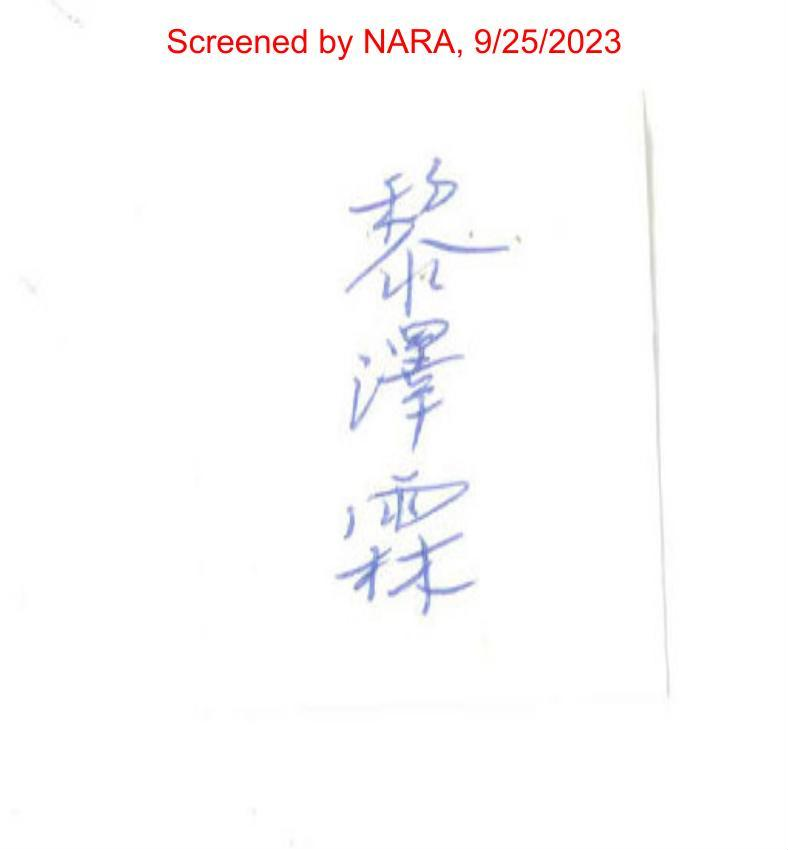 Screened by NARA, 9/25/2023
黎澤霖